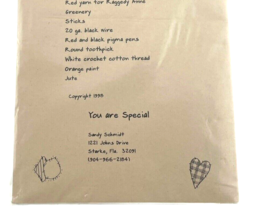 Red yarn for Raggedy Anne
Greenery
Sticks
20 ga. black wire
Red and black pigma pens
Round toothpick
White crochet cotton thread
Orange paint
Jute
Copyright 1998
You are Special
Sandy Schmidt
1221 Johns Drive
Starke, Fla. 32091